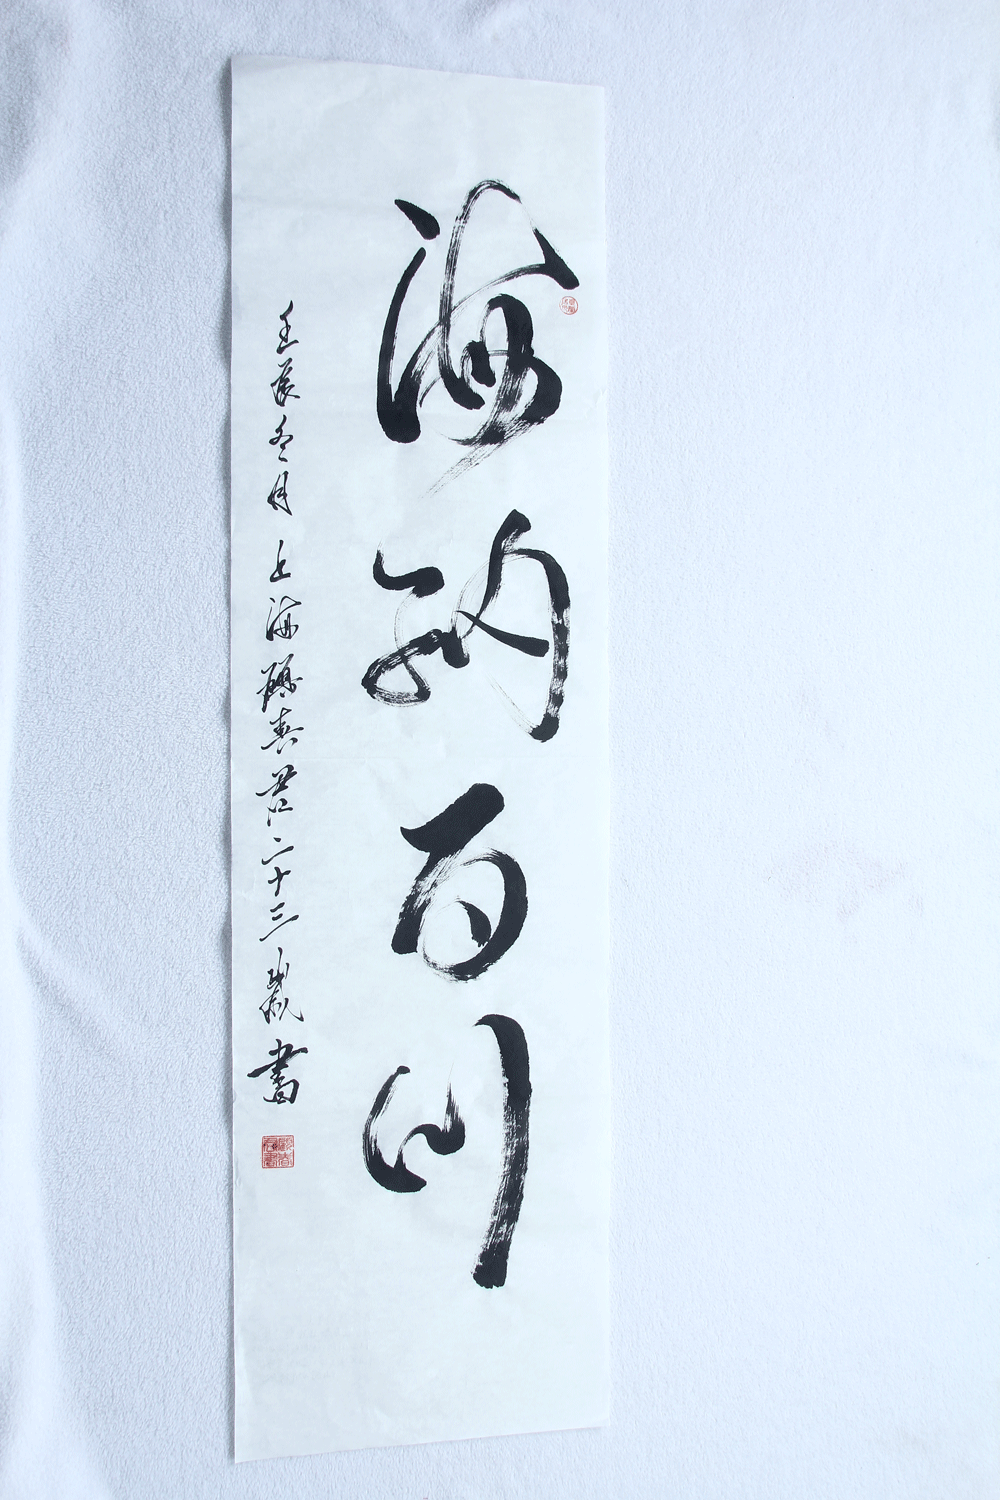 海纳百川
壬辰冬月上海顾春芳二十三岁書